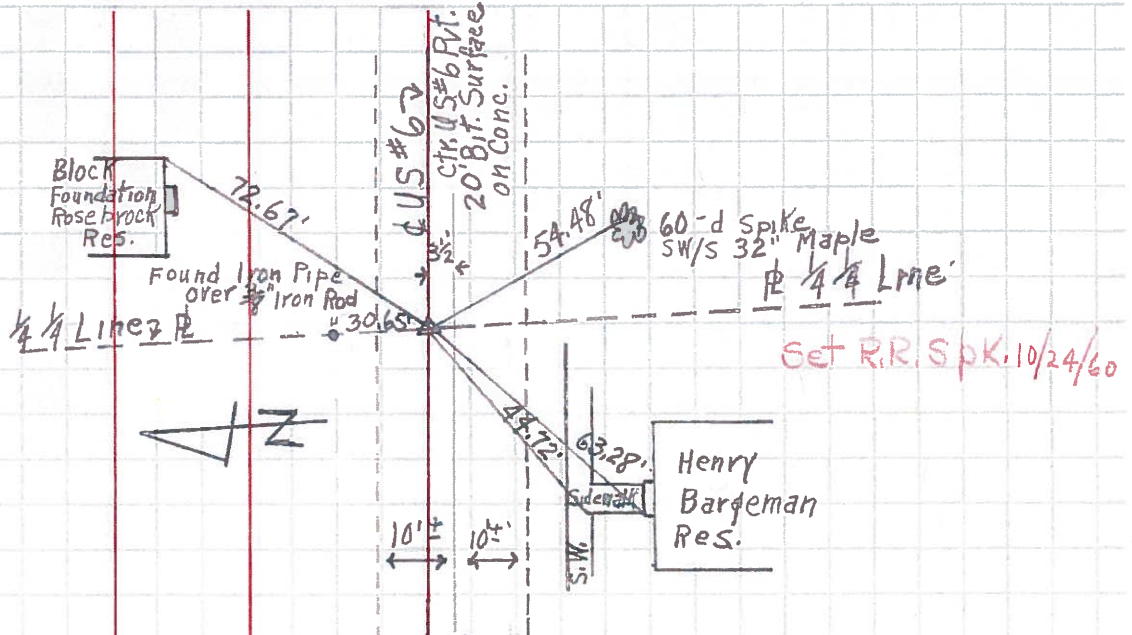 Block
Foundation
Rosebrock
Res.
72.67'
℄ US #6
Ctr. US #6 Pvt.
20' Bit. Surface
on Conc.
3½'
54.48'
60-d Spike
SW/S 32" Maple
℄ ¼ ¼ Line
Found Iron Pipe
over Iron Rod
30.65'
¼ ¼ Line ℄
Set R.R. Spk. 10/24/60
N
44.72'
63.28'
Sidewalk
Henry
Bargeman
Res.
10' ±
10 ±'
S.W.